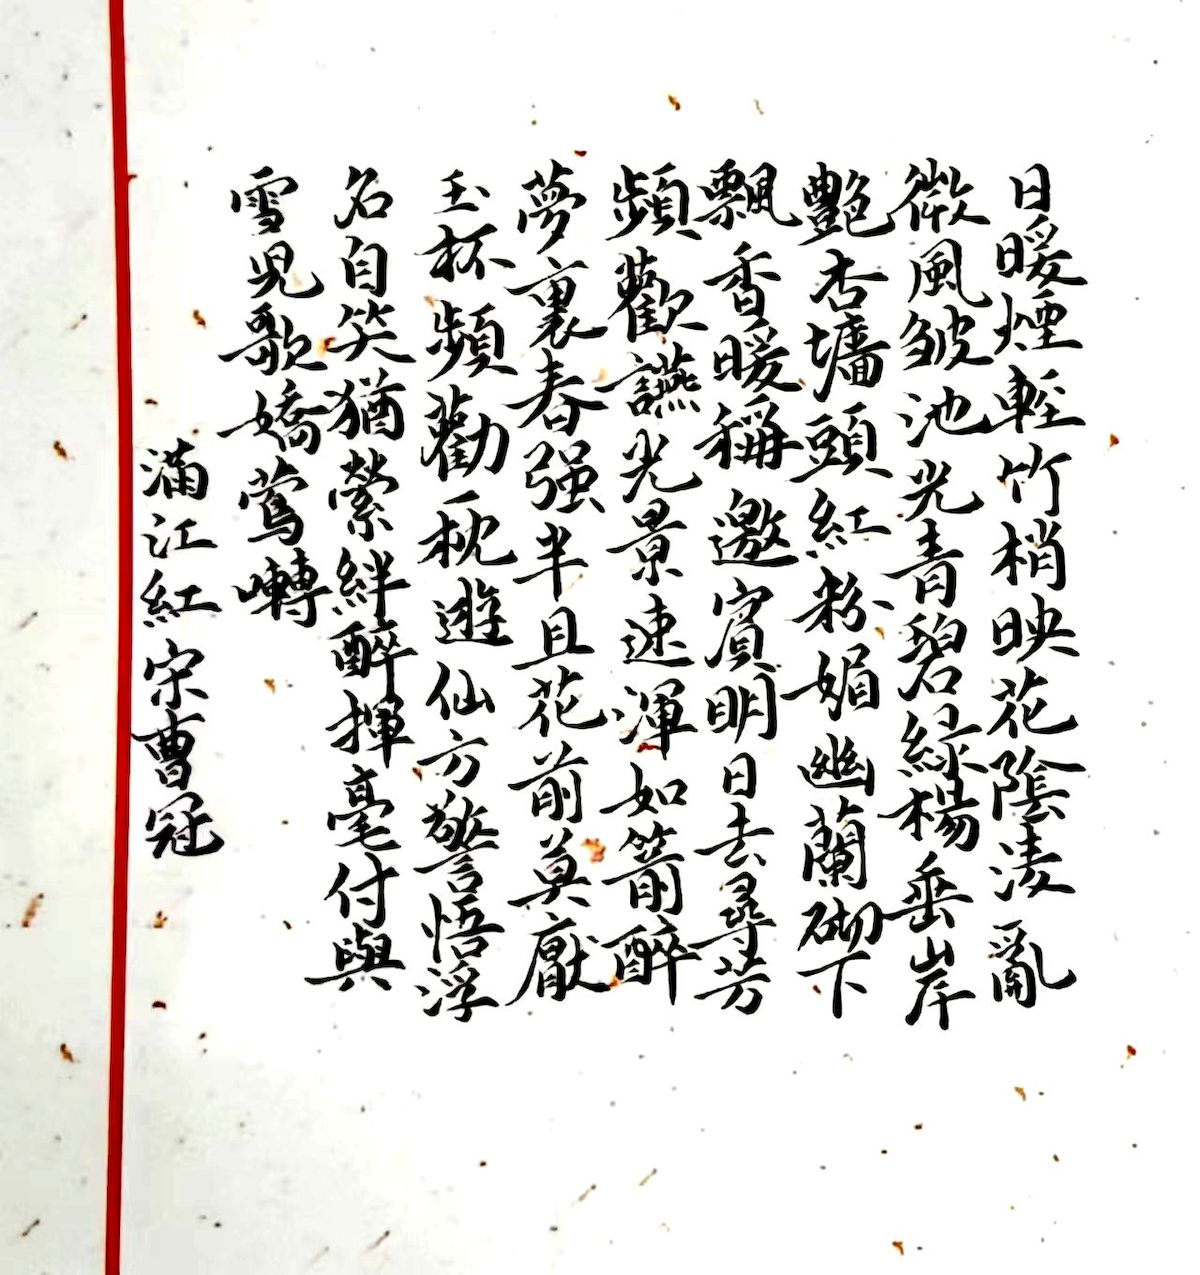 日暖煙輕竹梢映花陰凌亂
微風皱池光青碧綠楊垂岸
艷杏墻頭紅粉媚幽蘭砌下
飄香暖稱邀賓明日去尋芳
頻歡讌光景速渾如箭醉
夢裏春强半且花前莫厭
玉杯頻勸一枕遊仙方警悟浮
名自笑猶縈絆醉揮毫付與
雪児歌嬌鶯囀
滿江紅宋曹冠